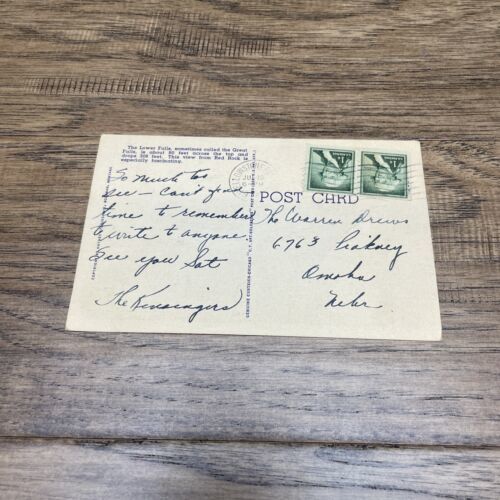 The Lower Falls, sometimes called the Great
Falls, is about 80 feet across the top and
drops 308 feet. This view from Red Rock is
especially fascinating.
POST CARD
So much to
see — Can't find
time to remember
to write to anyone
See you Sat
The Kensingers
The Warren Drews
6763 Pinkney
Omaha
Nebr